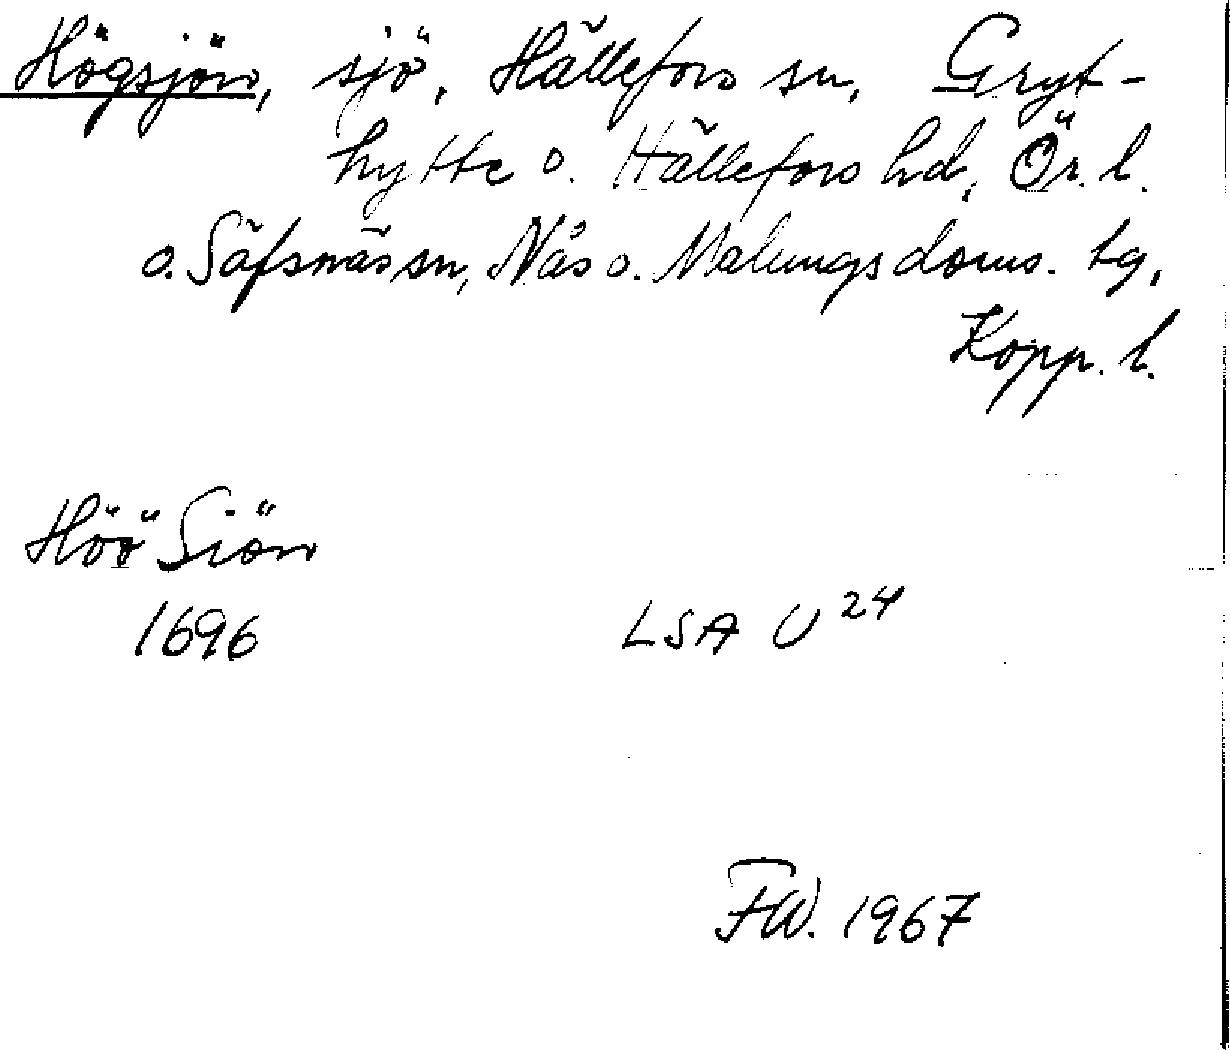 Högsjön, sjö, Hällefors sn, Gryt-
hytte o. Hällefors hd, Ör. l.
o. Säfsnäs sn, Nås o. Malungs doms. tg,
Kopp. l.
Höö Siön
1696 LSA U 24
FW. 1967